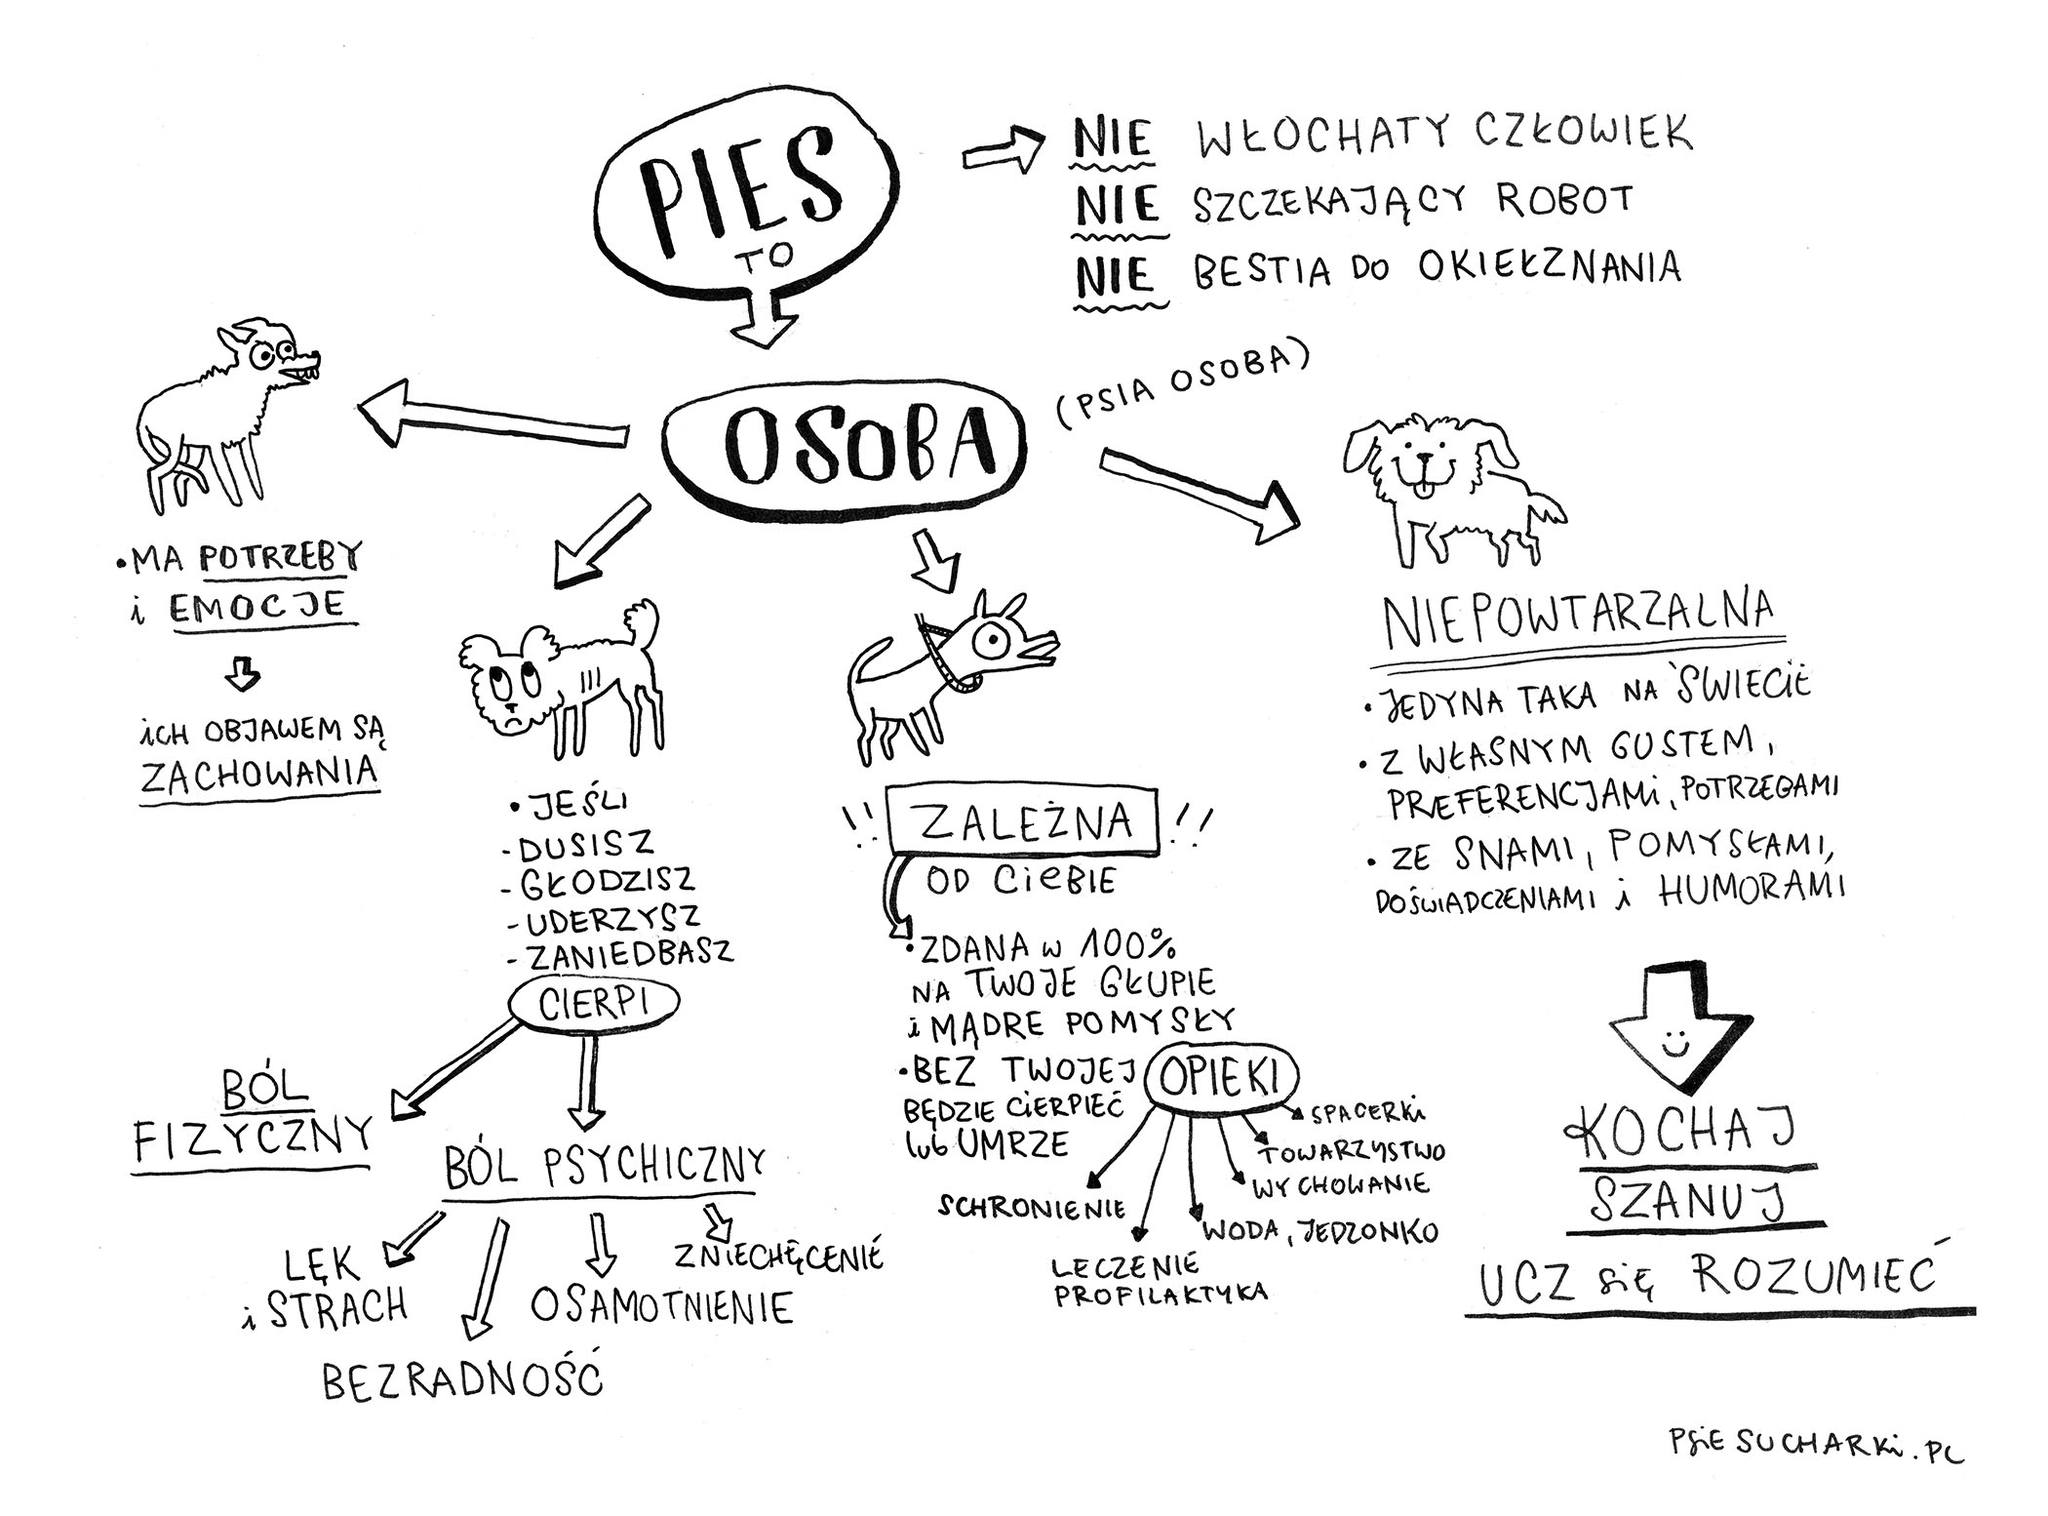 PIES
TO
NIE WŁOCHATY CZŁOWIEK
NIE SZCZEKAJĄCY ROBOT
NIE BESTIA DO OKIEŁZNANIA
OSOBA
(PSIA OSOBA)
• MA POTRZEBY
i EMOCJE
iCH OBJAWEM SĄ
ZACHOWANIA
• JEŚLI
- DUSISZ
- GŁODZISZ
- UDERZYSZ
- ZANIEDBASZ
CIERPI
BÓL
FIZYCZNY
BÓL PSYCHICZNY
LĘK
i STRACH
BEZRADNOŚĆ
OSAMOTNIENIE
ZNIECHĘCENIE
!! ZALEŻNA !!
OD CiEBIE
• ZDANA W 100%
NA TWOJE GŁUPIE
i MĄDRE POMYSŁY
• BEZ TWOJEJ OPIEKI
BĘDZIE CiERPIEĆ
lub UMRZE
SCHRONIENIE
LECZENIE
PROFILAKTYKA
WODA, JEDZONKO
WYCHOWANIE
TOWARZYSTWO
SPACERKi
NIEPOWTARZALNA
• JEDYNA TAKA NA ŚWIECIE
• Z WŁASNYM GUSTEM,
PREFERENCJAMi, POTRZEBAMI
• ZE SNAMI, POMYSŁAMI,
DOŚWIADCZENIAMI i HUMORAMI
KOCHAJ
SZANUJ
UCZ SIĘ ROZUMIEĆ
PSiESUCHARKi.PL